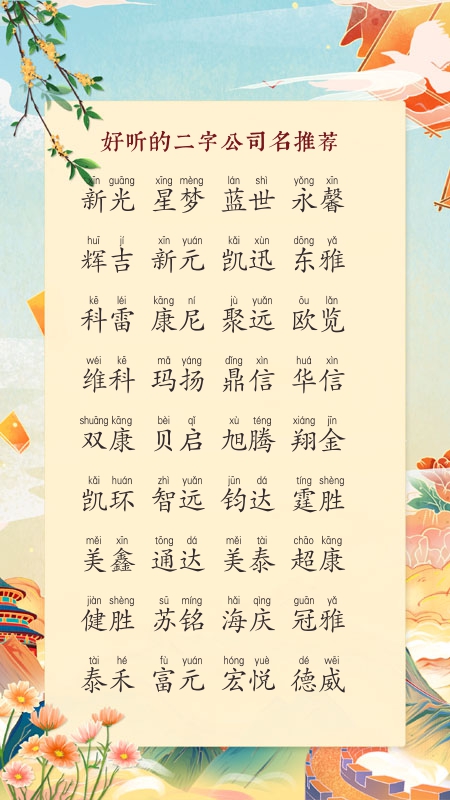 好听的二字公司名推荐
xīn guāng xīng mèng lán shì yǒng xīn
新光 星梦 蓝世 永馨
huī jí xīn yuán kǎi xùn dōng yǎ
辉吉 新元 凯迅 东雅
kē léi kāng ní jù yuǎn ōu lǎn
科雷 康尼 聚远 欧览
wéi kē mǎ yáng dǐng xìn huá xìn
维科 玛扬 鼎信 华信
shuāng kāng bèi qǐ xù téng xiáng jīn
双康 贝启 旭腾 翔金
kǎi huán zhì yuǎn jūn dá tíng shèng
凯环 智远 钧达 霆胜
měi xīn tōng dá měi tài chāo kāng
美鑫 通达 美泰 超康
jiàn shèng sū míng hǎi qìng guān yǎ
健胜 苏铭 海庆 冠雅
tài hé fù yuán hóng yuè dé wēi
泰禾 富元 宏悦 德威